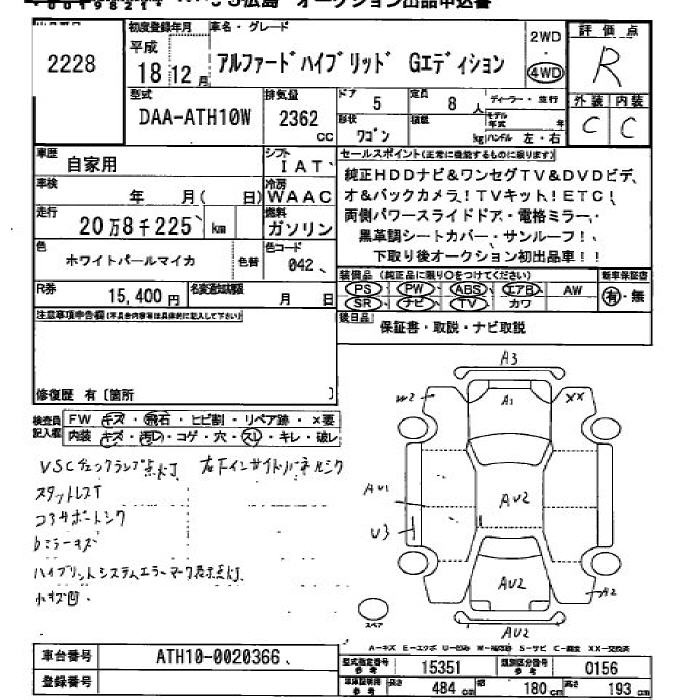 広島 オークション出品申込書
2228
初度登録年月 車名・グレード
平成
18 12月
アルファードハイブリッド Gエディション
2WD
4WD
評価点
R
型式 排気量 ドア 定員
DAA-ATH10W 2362 cc
5 8人
形状 ワゴン
kg ハンドル 左・右
外装 内装
C C
車歴 自家用
シフト IAT
車検 年 月( 日)
冷房 WAAC
走行 20万8千225 km
燃料 ガソリン
色 ホワイトパールマイカ 色替
色コード 042
R券 15,400円
月 日
セールスポイント(正常に機能するものに限ります)
純正HDDナビ&ワンセグTV&DVDビデ
オ&バックカメラ!TVキット!ETC!
両側パワースライドドア・電格ミラー・
黒革調シートカバー・サンルーフ!
下取り後オークション初出品車!!
装備品 (純正品に限り○をつけてください) 新車保証書
PS PW ABS エアB AW 有・無
SR ナビ TV カワ
後日品
保証書・取説・ナビ取説
注意事項申告欄(不具合内容等は具体的に記入して下さい)
修復歴 有〔箇所 〕
検査員記入欄
FW キズ・飛石・ヒビ割・リペア跡・×要
内装 キズ・汚レ・コゲ・穴・スレ・キレ・破レ
VSCチェックランプ点灯
スタットレスT
ハイブリットシステムエラーマーク表示点灯
小キズ凹
A3
W2 A1 XX
AU1 AU2
U3
AU2 A2
スペア
AU2
車台番号 ATH10-0020366
登録番号
型式指定番号 15351 類別区分番号 0156
長さ 484cm 幅 180cm 高さ 193cm